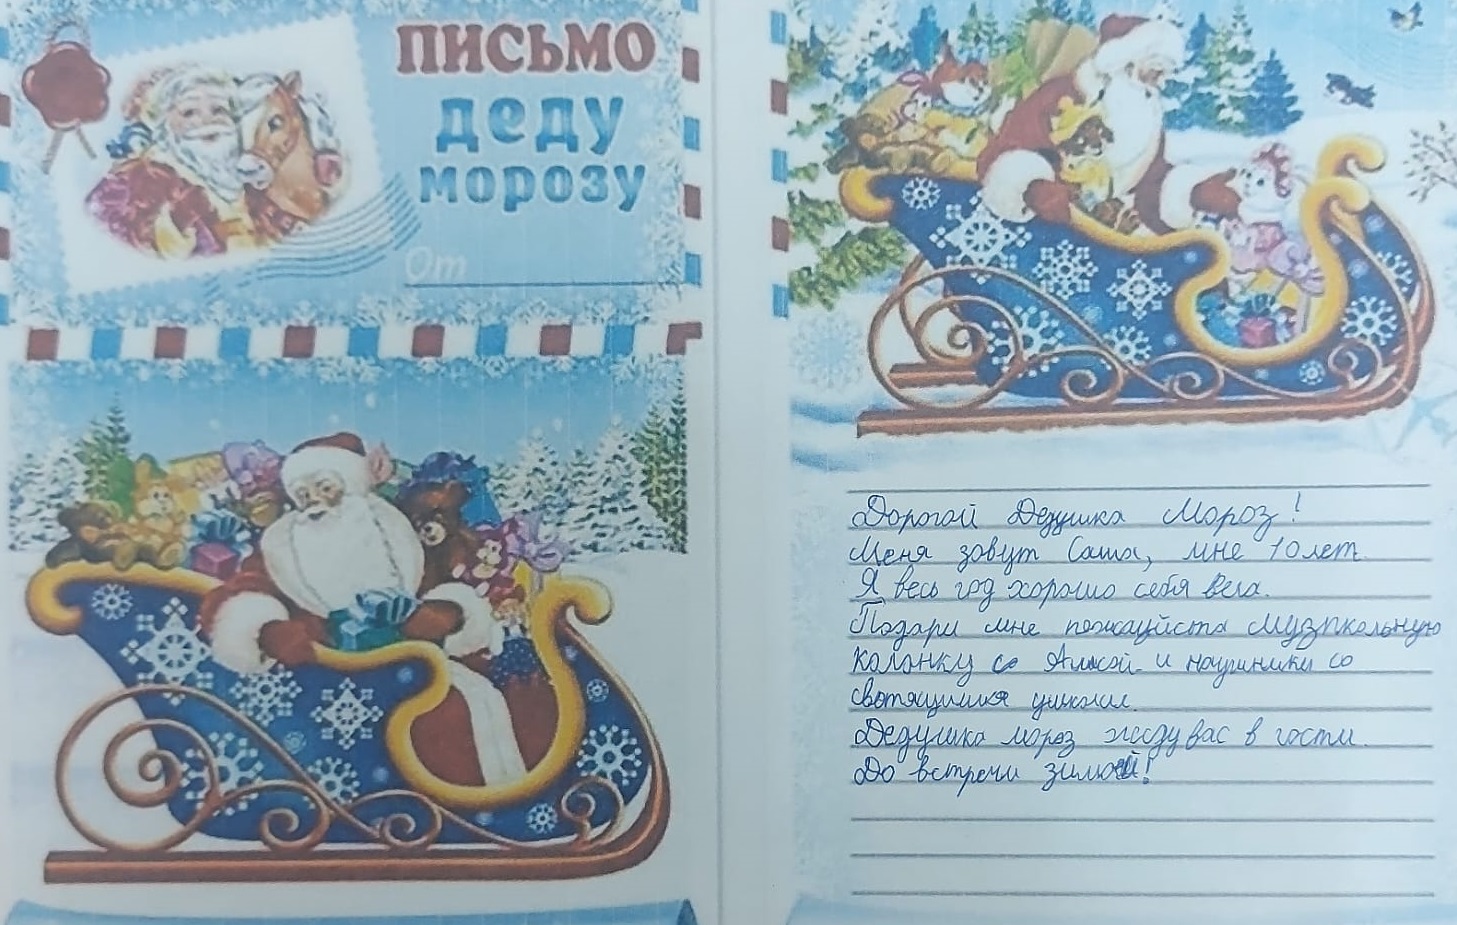 ПИСЬМО
ДЕДУ
МОРОЗУ
От
Дорогой Дедушка Мороз!
Меня зовут Саша, мне 10 лет.
Я весь год хорошо себя вела.
Подари мне пожауйста музыкольную
колонку со Алисой и наушники со
свотящимися ушками.
Дедушка мороз жду вас в гости.
До встречи зимой!